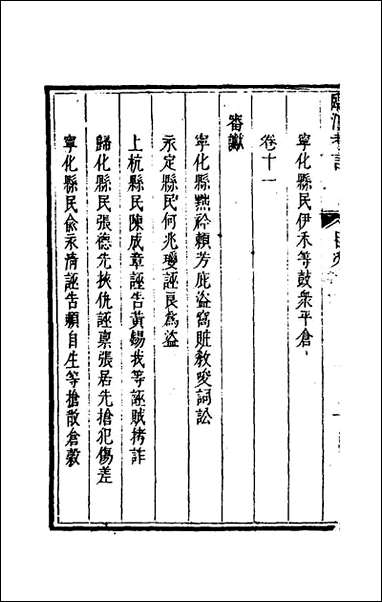 寧化縣民伊禾等鼓衆平倉
卷十一
審讞
寧化縣㷼衿賴芳庇盜窩賍敎唆詞訟
永定縣民何兆瓊誣良為盜
上杭縣民陳成章誣告黃錫我等誣賊拷詐
歸化縣民張德先挾仇誣禀張居先搶犯傷差
寧化縣民兪永清誣告賴自生等搶散倉穀